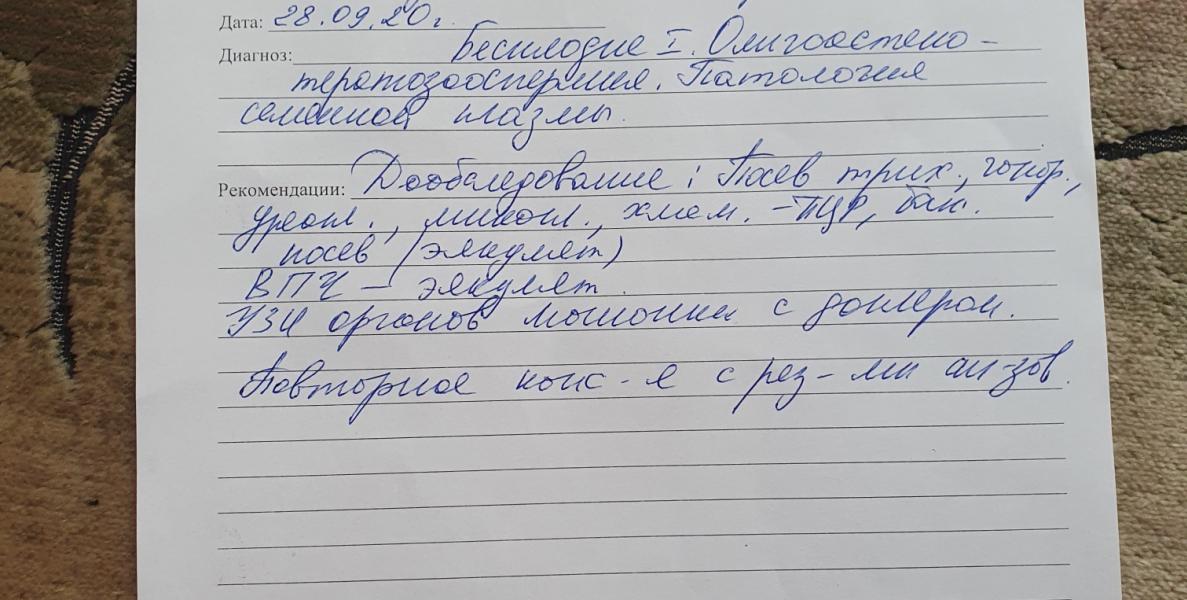 Дата: 28.09.20г.
Диагноз: Бесплодие I. Олигоастено-
тератозооспермия. Патология
семенной плазмы.
Рекомендации: Дообследование: Посев трих., гонор.,
уреапл., микопл., хлам. - ПЦР, бак.
посев (эякулят)
ВПЧ - эякулят.
УЗИ органов мошонки с доплером.
Повторное конс-я с рез-ми ан-зов.